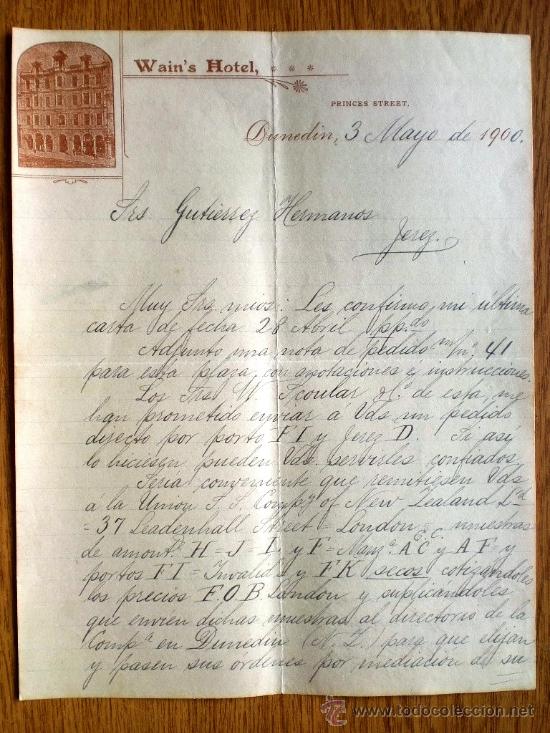 Wain's Hotel,
PRINCES STREET,
Dunedin, 3 Mayo de 1900.
Srs Gutierrez Hermanos
Jerez.
Muy Srs mios: Les confirmo mi última
carta de fecha 28 Abril pp.do
Adjunto una nota de pedido m/nº 41
para esta plaza, con anotaciones e instrucciones.
Los Srs W. Scoular &Cº de esta, me
han prometido enviar á Vds un pedido
directo por porto FI y Jerez D. Si así
lo hiciesen pueden Vds servirles confiados.
Seria conveniente que remitiesen Vds
á la Union S. S. Compy of New Zealand Ld
= 37 Leadenhall Street = London = muestras
de amontº H = J = I y F = Manzª A C C. C. y A F = y
portos FI = Invalids y FK secos cotizandoles
los precios F.O.B London y suplicandoles
que envien dichas muestras al directorio de la
Compª en Dunedin (N. Z.) para que elijan
y pasen sus ordenes por mediacion de su
www.todocoleccion.net